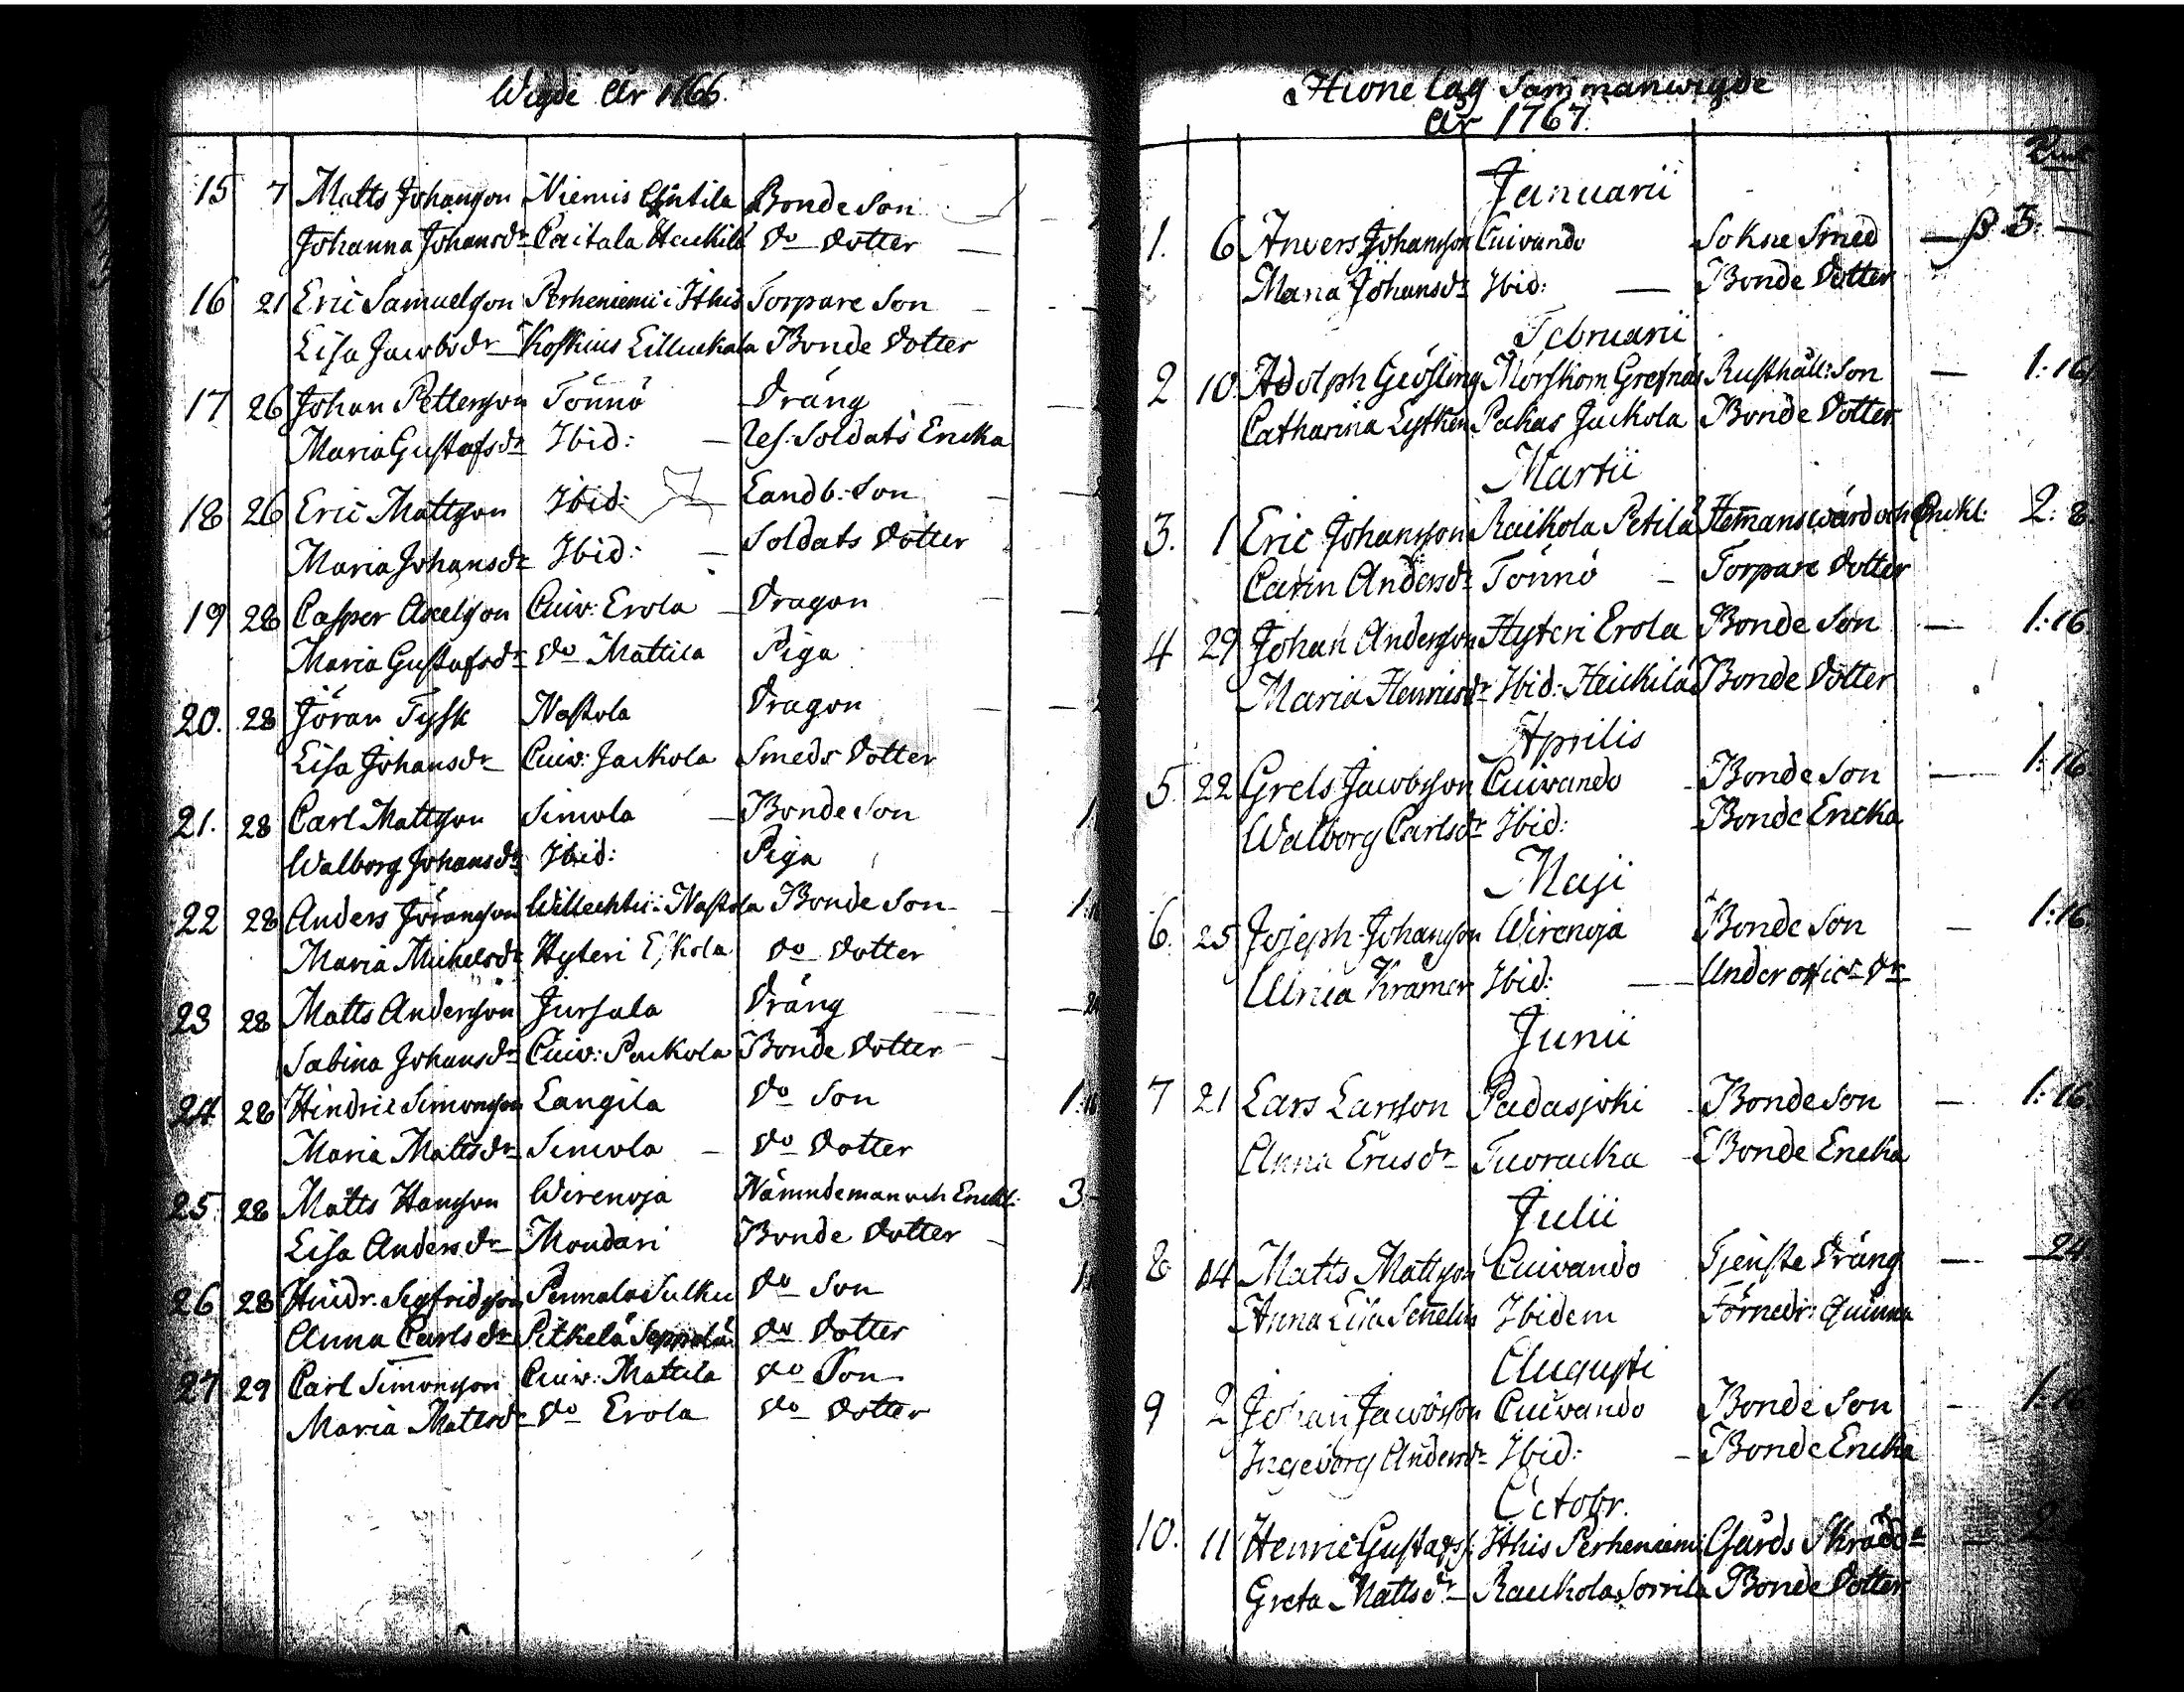 Wigde År 1766.
15 7 Matts Johansson Niemis Bonde Son
Johanna Johansdr Caitala Heickilä do dotter
16 21 Eric Samuelsson Perheniemi i Ithis Torpare Son
Lisa Jacobsdr Koskius Lilluckala Bonde dotter
17 26 Johan Pettersson Tönnö dräng
Maria Gustafsdr Ibid: Res: Soldats Encka
18 26 Eric Mattsson Ibid: Landb: Son
Maria Johansdr Ibid: Soldats dotter
19 28 Casper Axelsson Cuiv: Erola dragon
Maria Gustafsdr do Mattila Piga
20. 28 Jöran Tysk Nastola dragon
Lisa Johansdr Cuiv: Jackola Smeds dotter
21. 28 Carl Mattsson Simola Bonde Son
Walborg Johansdr Ibid: Piga
22 28 Anders Jöransson Willechti i Nastola Bonde Son
Maria Michelsdr Hyteri Eskola do dotter
23 28 Matts Andersson Jursala dräng
Sabina Johansdr Cuiv: Packola Bonde dotter
24 28 Hindric Simonsson Langila do Son
Maria Mattsdr Simola do dotter
25 28 Matts Hansson Wirenoja Nämndeman och Enckl: 3
Lisa Andersdr Mondari Bonde dotter
26 28 Hindr. Segfridsson Pennala Sulku do Son
Anna Carlsdr Pitkelä Seppälä do dotter
27 29 Carl Simonsson Cuiv: Mattila do Son
Maria Matsdr do Erola do dotter
Hionelag Sammanwigde
År 1767.
Januarii
1. 6 Anders Johansson Cuivando Sokne Smed 3:
Maria Johansdr Ibid: Bonde dotter
Februarii
2 10. Adolph Geösling Mörskom Grefnäs Rusthåll: Son 1:16
Catharina Lythen Pakas Jackola Bonde dotter
Martii
3. 1 Eric Johansson Raikola Petilä Hemansward och Enckl: 2: 8.
Carin Andersdr Tönnö Torpare dotter
4 29 Johan Andersson Hyteri Erola Bonde Son 1:16.
Maria Henricsdr Ibid: Heickilä Bonde dotter
Aprilis
5. 22 Grels Jacobsson Cuivando Bonde Son 1:16.
Walborg Carlsdr Ibid: Bonde Encka
Maji
6. 25 Joseph Johansson Wirenoja Bonde Son 1:16.
Ulrica Kramer Ibid: Underofic: dr
Junii
7 21 Lars Larsson Padasjoki Bonde Son 1:16.
Anna Ericsdr Tuoracka Bonde Encka
Julii
8 14 Matts Mattsson Cuivando Tjenste dräng 24.
Anna Lisa Senelin Ibidem Förnedr: Quinna
Augusti
9 2 Johan Jacobsson Cuivando Bonde Son 1:16
Ingeborg Andersdr Ibid: Bonde Encka
Octobr.
10. 11 Henric Gustafss: Ithis Perheniemi Gårds Skräddr 2
Greta Mattsdr Raukola Sorrila Bonde dotter